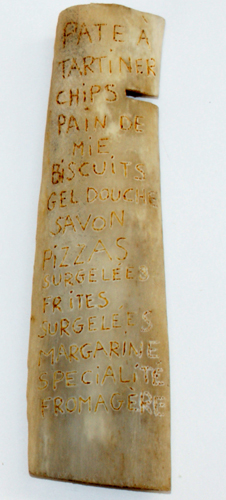 PATE À
TARTINER
CHIPS
PAIN DE
MIE
BISCUITS
GEL DOUCHE
SAVON
PIZZAS
SURGELÉES
FRITES
SURGELÉES
MARGARINE
SPECIALITÉ
FROMAGÈRE